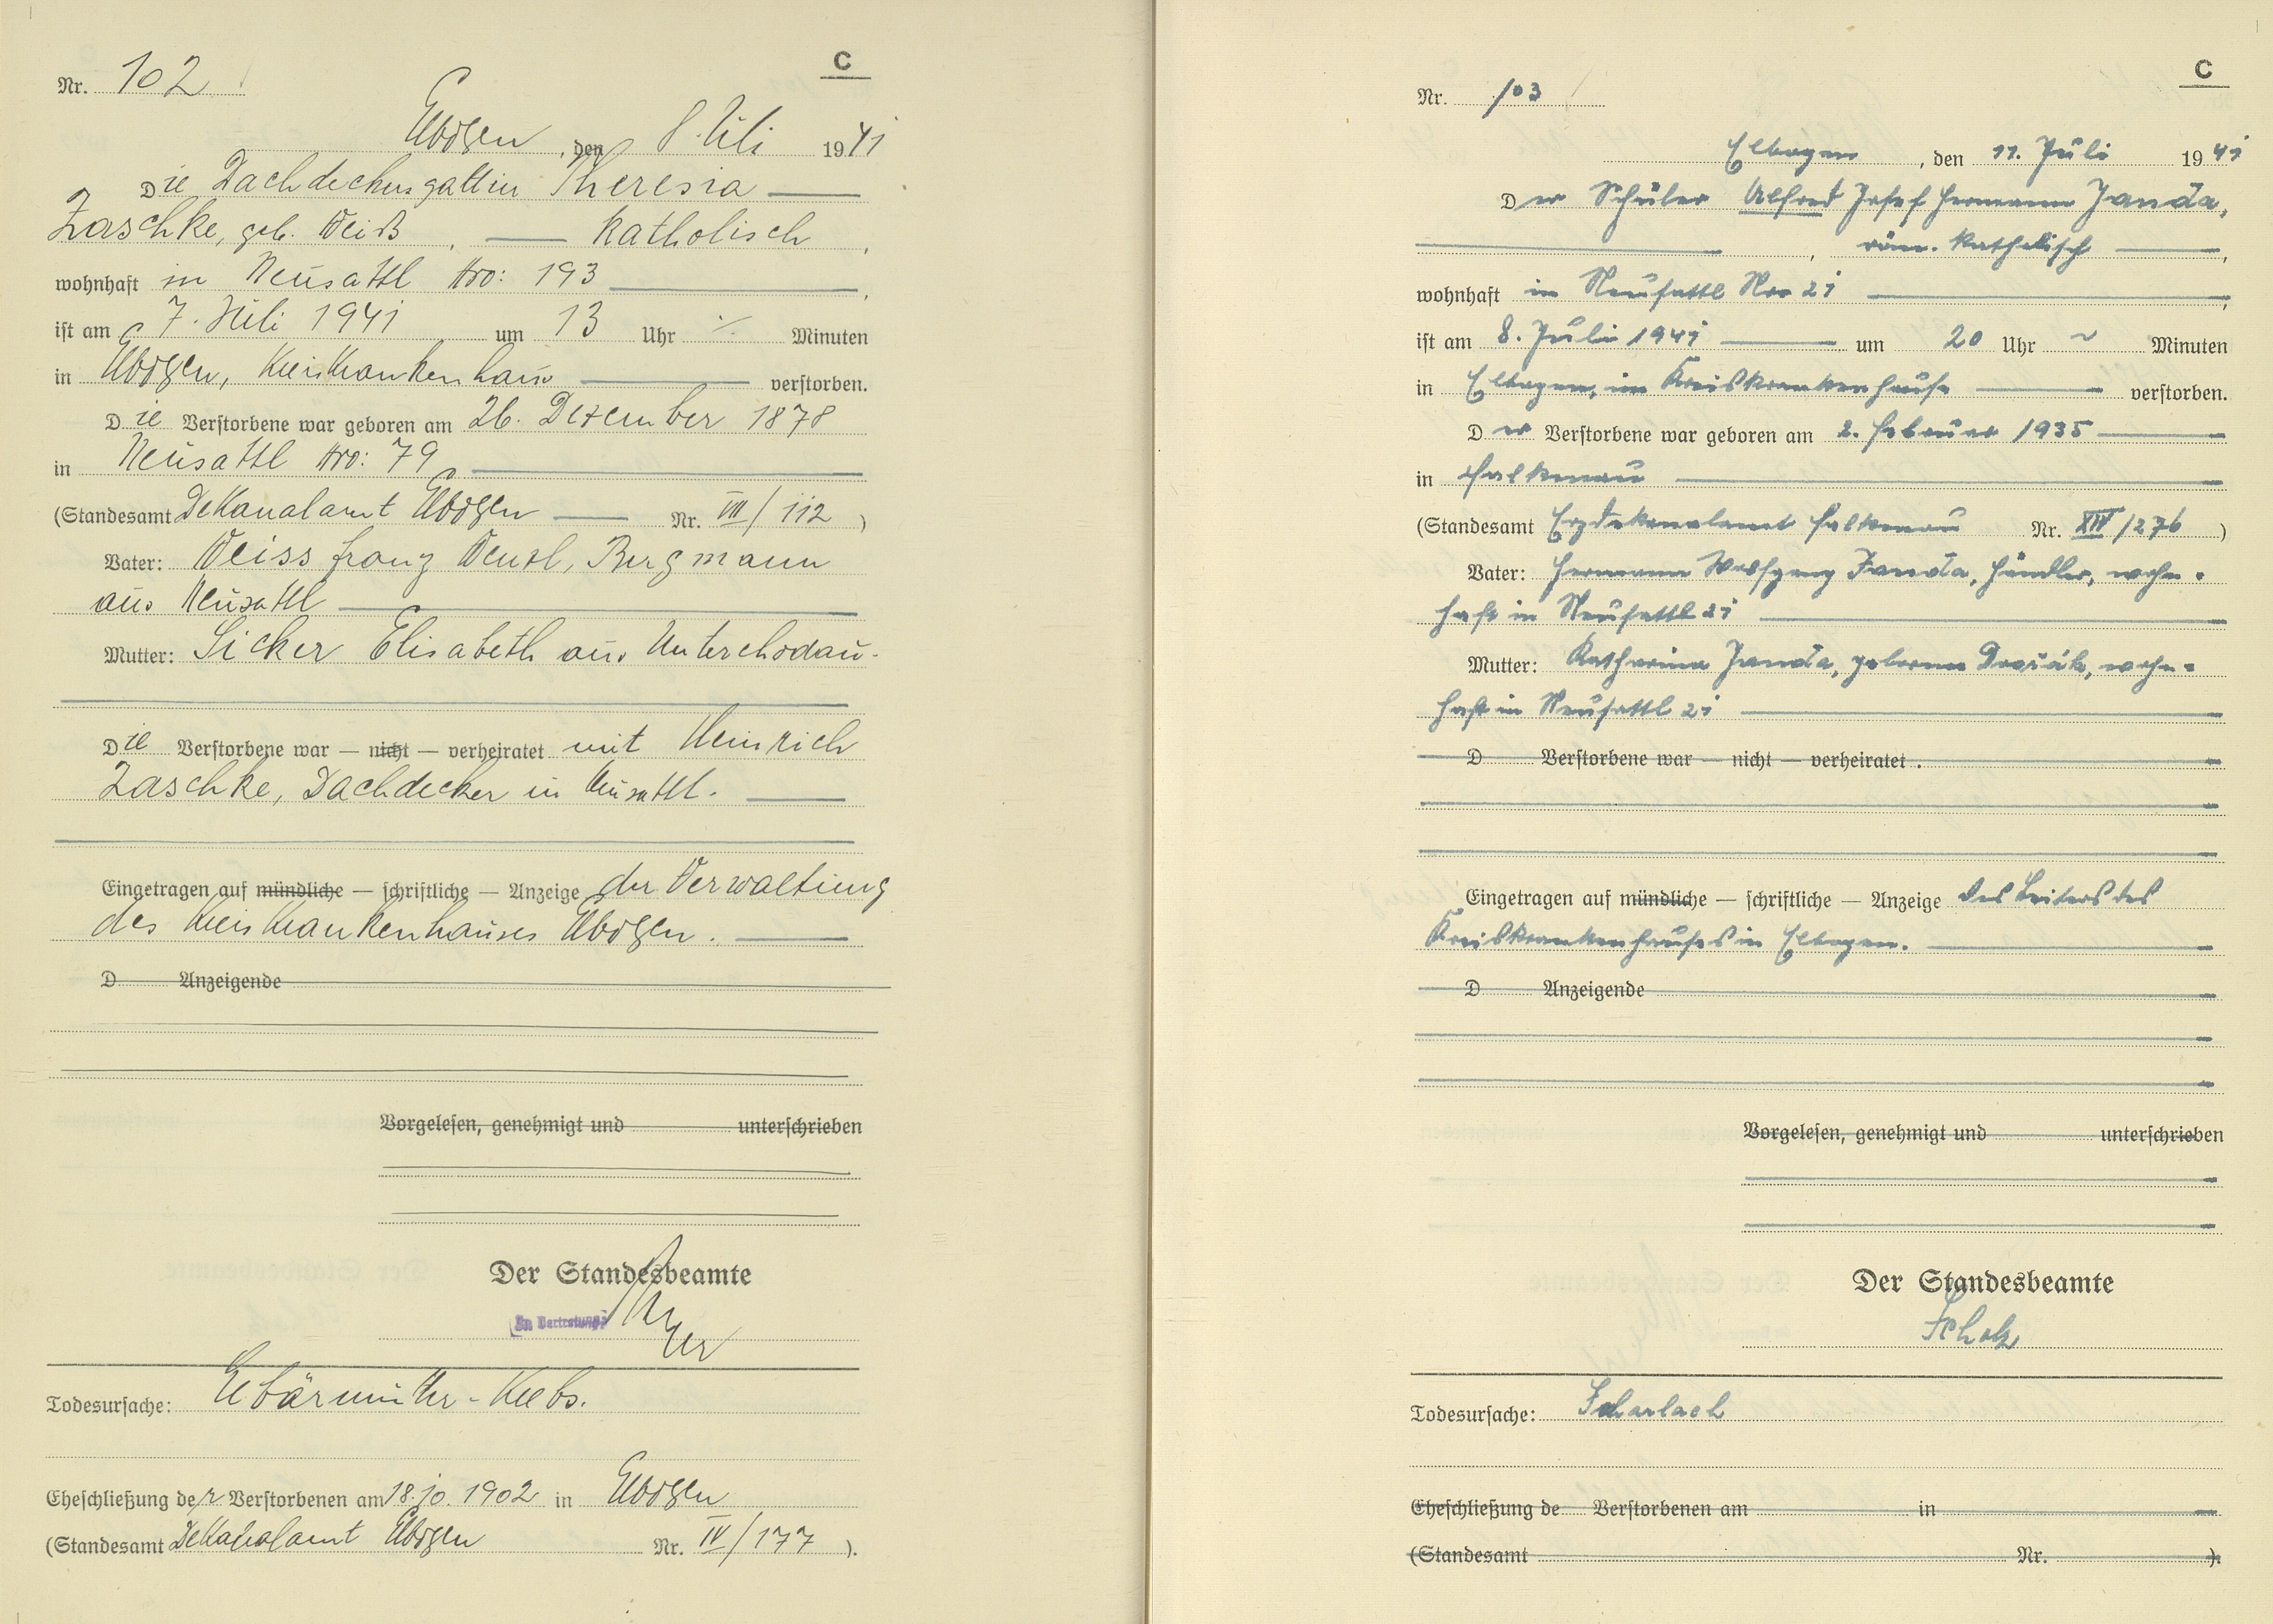 C
Nr. 102
Elbogen, den 8. Juli 1941
Die Dachdeckersgattin Theresia
Zaschke, geb. Weiß, katholisch,
wohnhaft in Neusattl Nro: 193,
ist am 7. Juli 1941 um 13 Uhr ·/· Minuten
in Elbogen, Kreiskrankenhaus verstorben.
Die Verstorbene war geboren am 26. Dezember 1878
in Neusattl Nro: 79
(Standesamt Dekanalamt Elbogen Nr. VII/112)
Vater: Weiss Franz Wenzl, Bergmann
aus Neusattl
Mutter: Sicker Elisabeth aus Unterchodau.
Die Verstorbene war — nicht — verheiratet mit Heinrich
Zaschke, Dachdecker in Neusattl.
Eingetragen auf mündliche — schriftliche — Anzeige der Verwaltung
des Kreiskrankenhauses Elbogen.
D Anzeigende
Vorgelesen, genehmigt und unterschrieben
Der Standesbeamte
In Vertretung:
Todesursache: Gebärmutter-Krebs.
Eheschließung der Verstorbenen am 18.10.1902 in Elbogen
(Standesamt Dekanalamt Elbogen Nr. IV/177).
C
Nr. 103
Elbogen, den 11. Juli 1941
Der Schüler Alfred Josef Hermann Janda,
, röm. katholisch,
wohnhaft in Neusattl Nro 21,
ist am 8. Juli 1941 um 20 Uhr ~ Minuten
in Elbogen, im Kreiskrankenhause verstorben.
Der Verstorbene war geboren am 2. Februar 1935
in Falkenau
(Standesamt Erzdekanalamt Falkenau Nr. XIV/276)
Vater: Hermann Wolfgang Janda, Händler, wohn-
haft in Neusattl 21
Mutter: Katharina Janda, geborene Dvořák, wohn-
haft in Neusattl 21
D Verstorbene war — nicht — verheiratet.
Eingetragen auf mündliche — schriftliche — Anzeige des Leiters des
Kreiskrankenhauses in Elbogen.
D Anzeigende
Vorgelesen, genehmigt und unterschrieben
Der Standesbeamte
Scholz
Todesursache: Scharlach
Eheschließung de Verstorbenen am in
(Standesamt Nr. ).